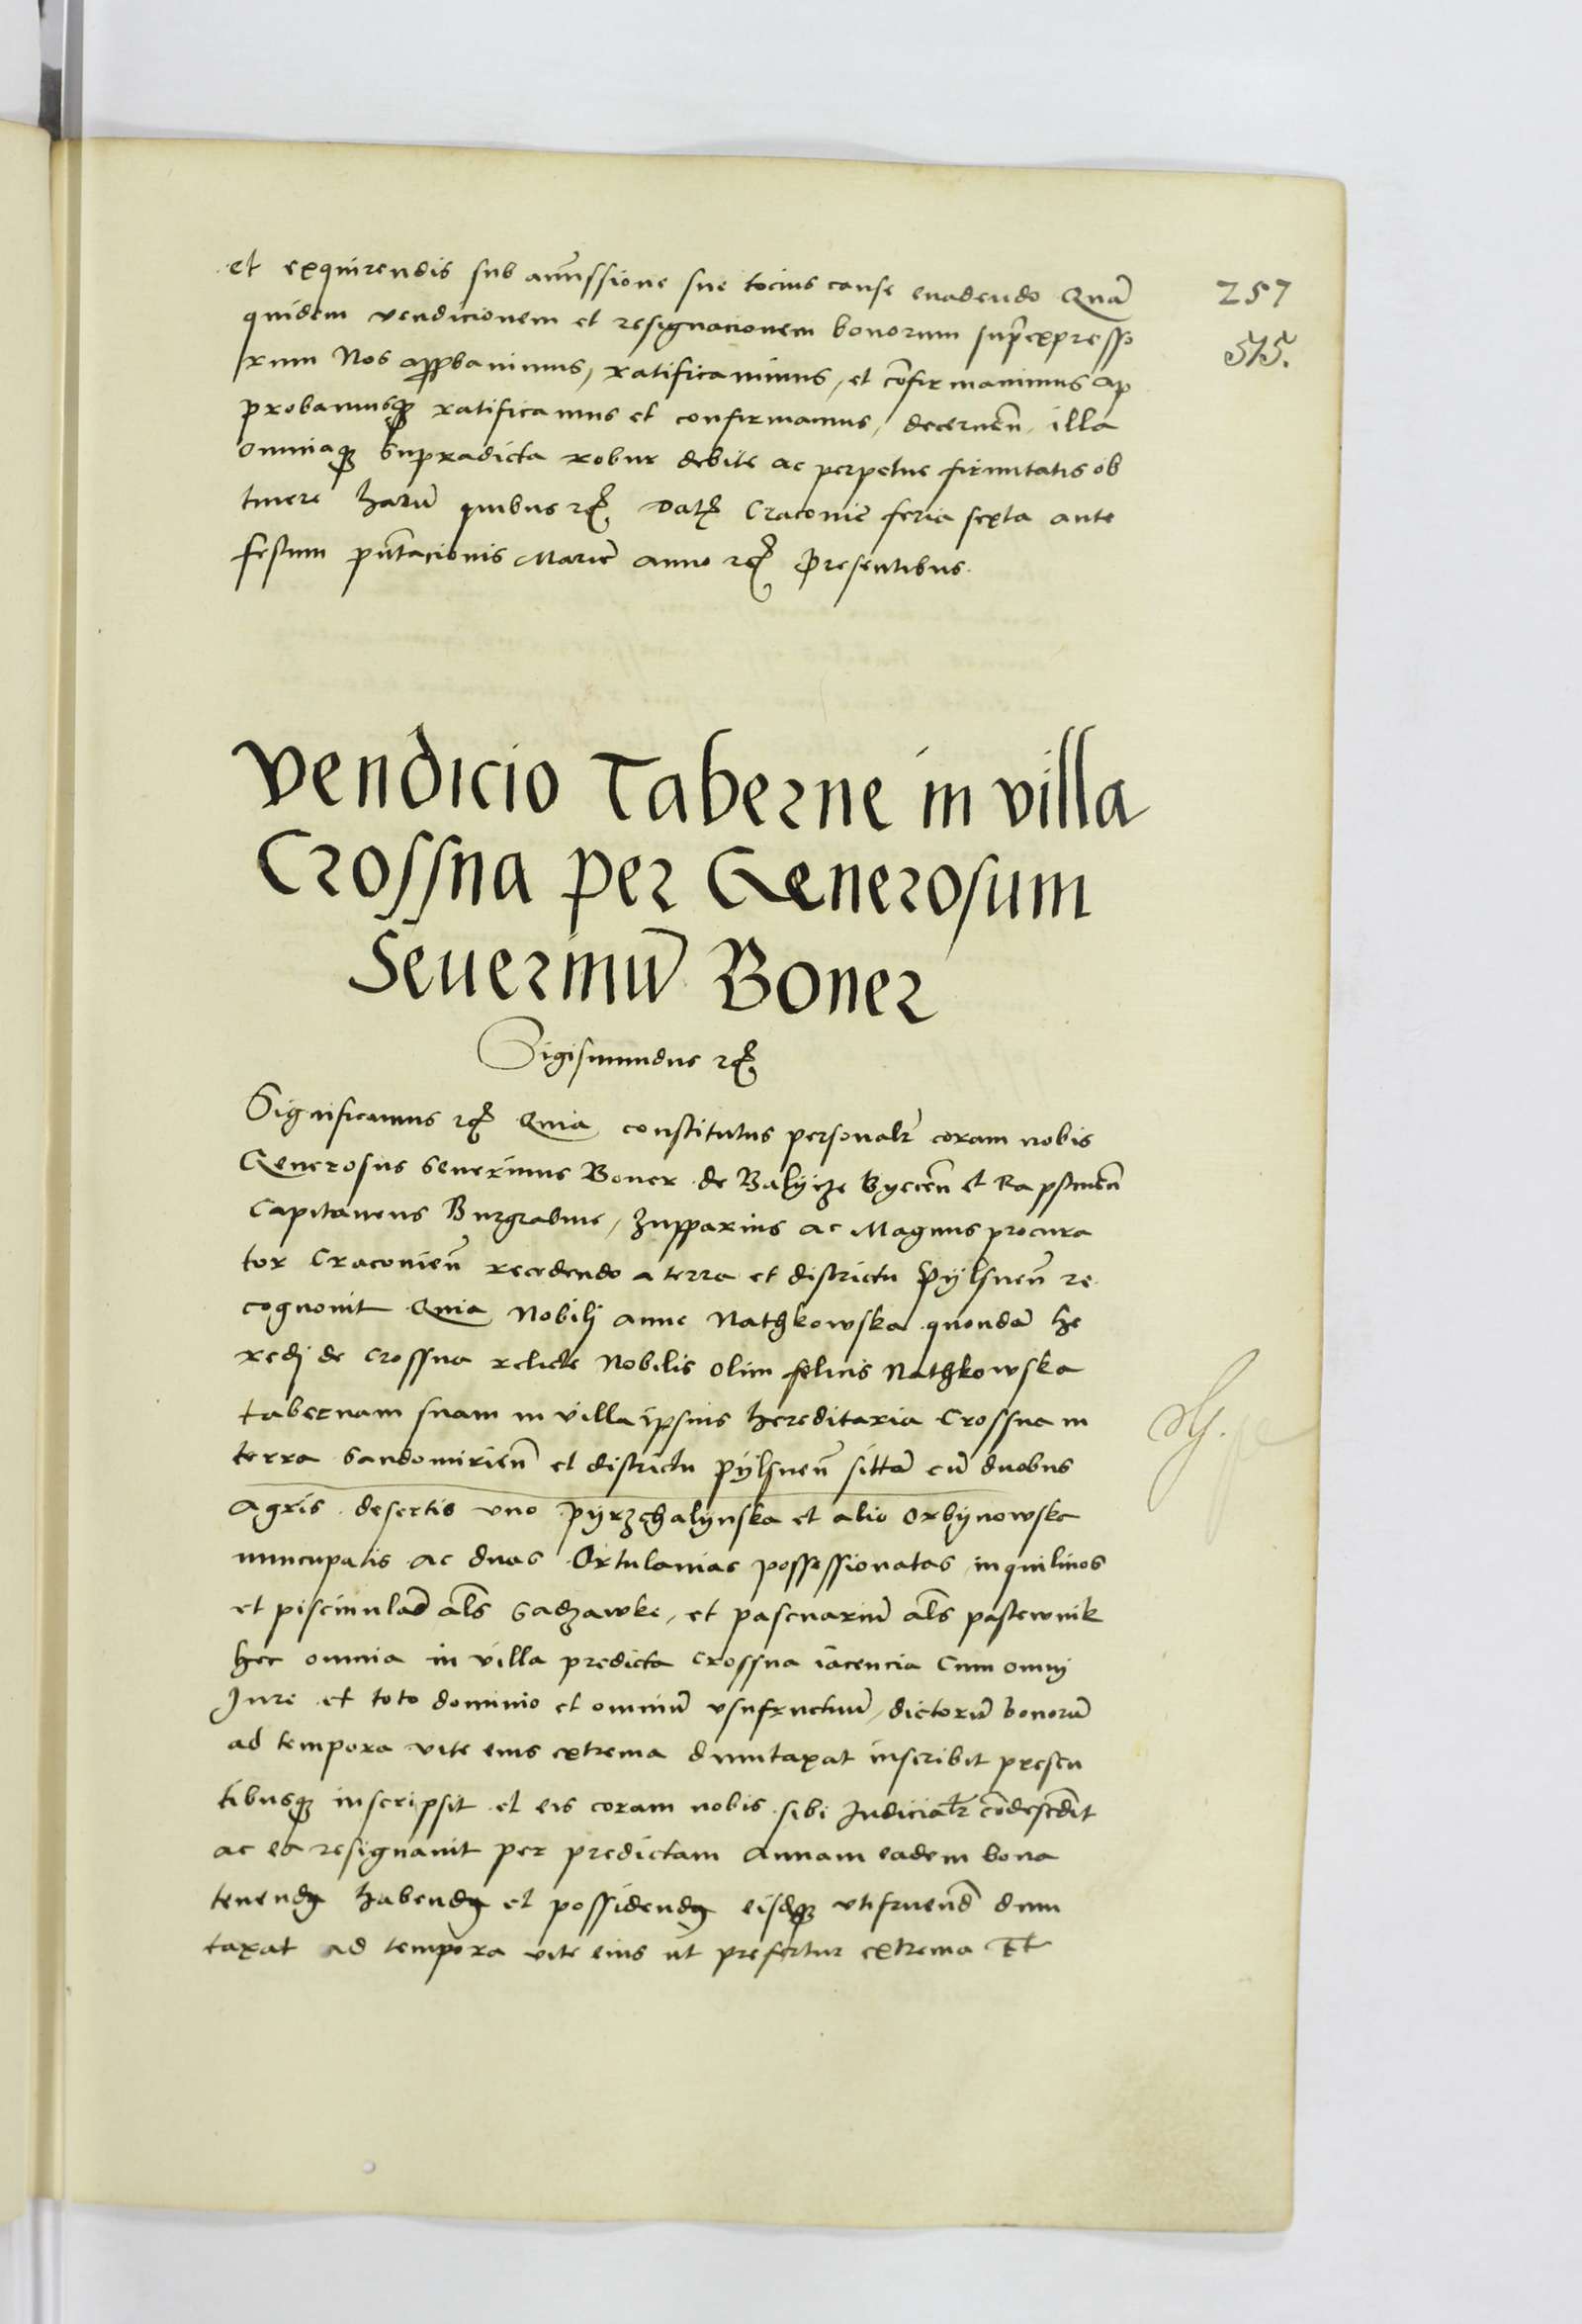 et exquirendis sub amīssione sue tocius cause evadendo Quā
257
quidem vendicionem et resignacionem bonorum suprāexpresso
515.
rum Nos appbavimus, ratificavimus, et cōfirmavimus ap
probamusqȝ ratificamus et confirmamus, decernen̄ illa
omniaqȝ supradicta robur debite ac perpetue firmitatis ob
tinere harū quibus rcꝭ. Datꝭ Cracovie feria sexta ante
festum pn̄tacionis Marie anno rcꝭ presentibus.
Vendicio Taberne in villa
Crossna per Generosum
Seuerinū Boner
Sigismundus rcꝭ
Significamus rcꝭ Quia constitutus personalr̄ coram nobis
Generosus Severinus Boner de Balycze Byecen̄ et Rapstinen̄
Capitaneus Burgrabius, Zupparius ac Magnus procura
tor Cracovien̄ recedendo a terra et districtu Pylsnen̄ re
cognovit Quia Nobilj Anne Nathkowska quondā he
redj de Crossna relicte Nobilis olim felicis Nathkowska
tabernam suam in villa ipsius hereditaria Crossna in
terra Sandomirien̄ et districtu Pylsnen̄ sittā cū duobus
agris desertis uno Pyrzchalynska et alio Orbynowske
nuncupatis ac duas Ortulanias possessionatas inquilinos
et piscinulas al̄s Sadzawke, et pascuariū al̄s pastewnik
hec omnia in villa predicta Crossna iacencia Cum omnj
Jure et toto dominio et omniū usufructuū, dictorū bonorū
ad tempora vite eius extrema dumtaxat inscribit presen
tibusqȝ inscripsit et eis coram nobis sibi Judicialr̄ cōdescēdit
ac ea resignavit per predictam Annam eadem bona
tenendꝫ habendꝫ et possidendꝫ eisdqȝ utifruend̄ dum
taxat ad tempora vite eius ut prefertur extrema Et